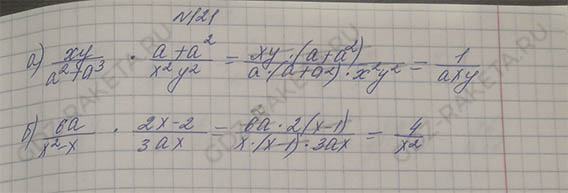 №121
а) xy/(a²+a³) · (a+a²)/(x²y²) = (xy·(a+a²))/(a·(a+a²)·x²y²) = 1/(axy)
б) 6a/(x²-x) · (2x-2)/(3ax) = (6a·2(x-1))/(x·(x-1)·3ax) = 4/x²
GDZ-RAKETA.RU